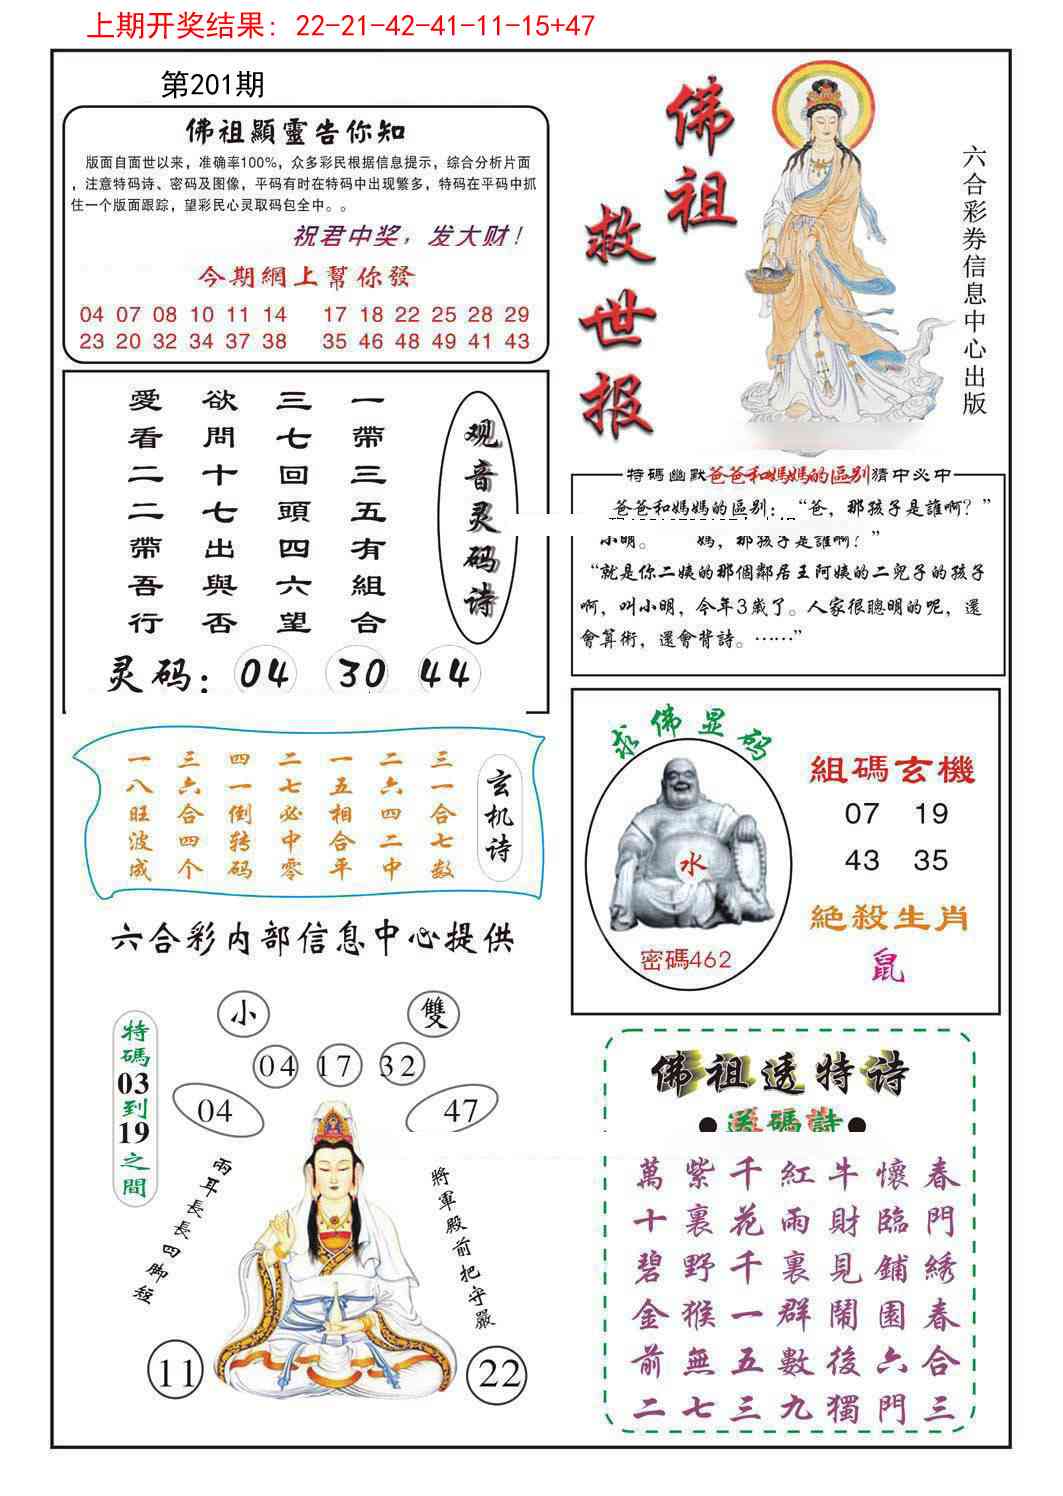 上期开奖结果：22-21-42-41-11-15+47
第201期
佛祖顯靈告你知
版面自面世以来，准确率100%，众多彩民根据信息提示，综合分析片面
，注意特码诗、密码及图像，平码有时在特码中出现繁多，特码在平码中抓
住一个版面跟踪，望彩民心灵取码包全中。。
祝君中奖，发大财！
今期網上幫你發
04 07 08 10 11 14 17 18 22 25 28 29
23 20 32 34 37 38 35 46 48 49 41 43
佛祖
救世报
六合彩券信息中心出版
观音灵码诗
一帶三五有組合
三七回頭四六望
欲問十七出與否
愛看二二帶吾行
灵码：04 30 44
特碼幽默爸爸和媽媽的區别猜中必中
爸爸和媽媽的區别：“爸，那孩子是誰啊？”
小明。 媽，那孩子是誰啊？”
“就是你二姨的那個鄰居王阿姨的二兒子的孩子
啊，叫小明，今年3歲了。人家很聰明的呢，還
會算術，還會背詩。……”
玄机诗
三一合七数
二六四二中
一五相合平
二七必中零
四一倒转码
三六合四个
一八旺波成
六合彩内部信息中心提供
求佛显码
水
密碼462
組碼玄機
07 19
43 35
絕殺生肖
鼠
特碼03到19之間
小
雙
04 17 32
04
47
兩耳長長四脚短
將軍殿前把守嚴
11
22
佛祖透特诗
●送碼詩●
春門綉春合三
懷臨鋪園六門
牛財見鬧後獨
紅雨裏群數九
千花千一五三
紫裏野猴無七
萬十碧金前二